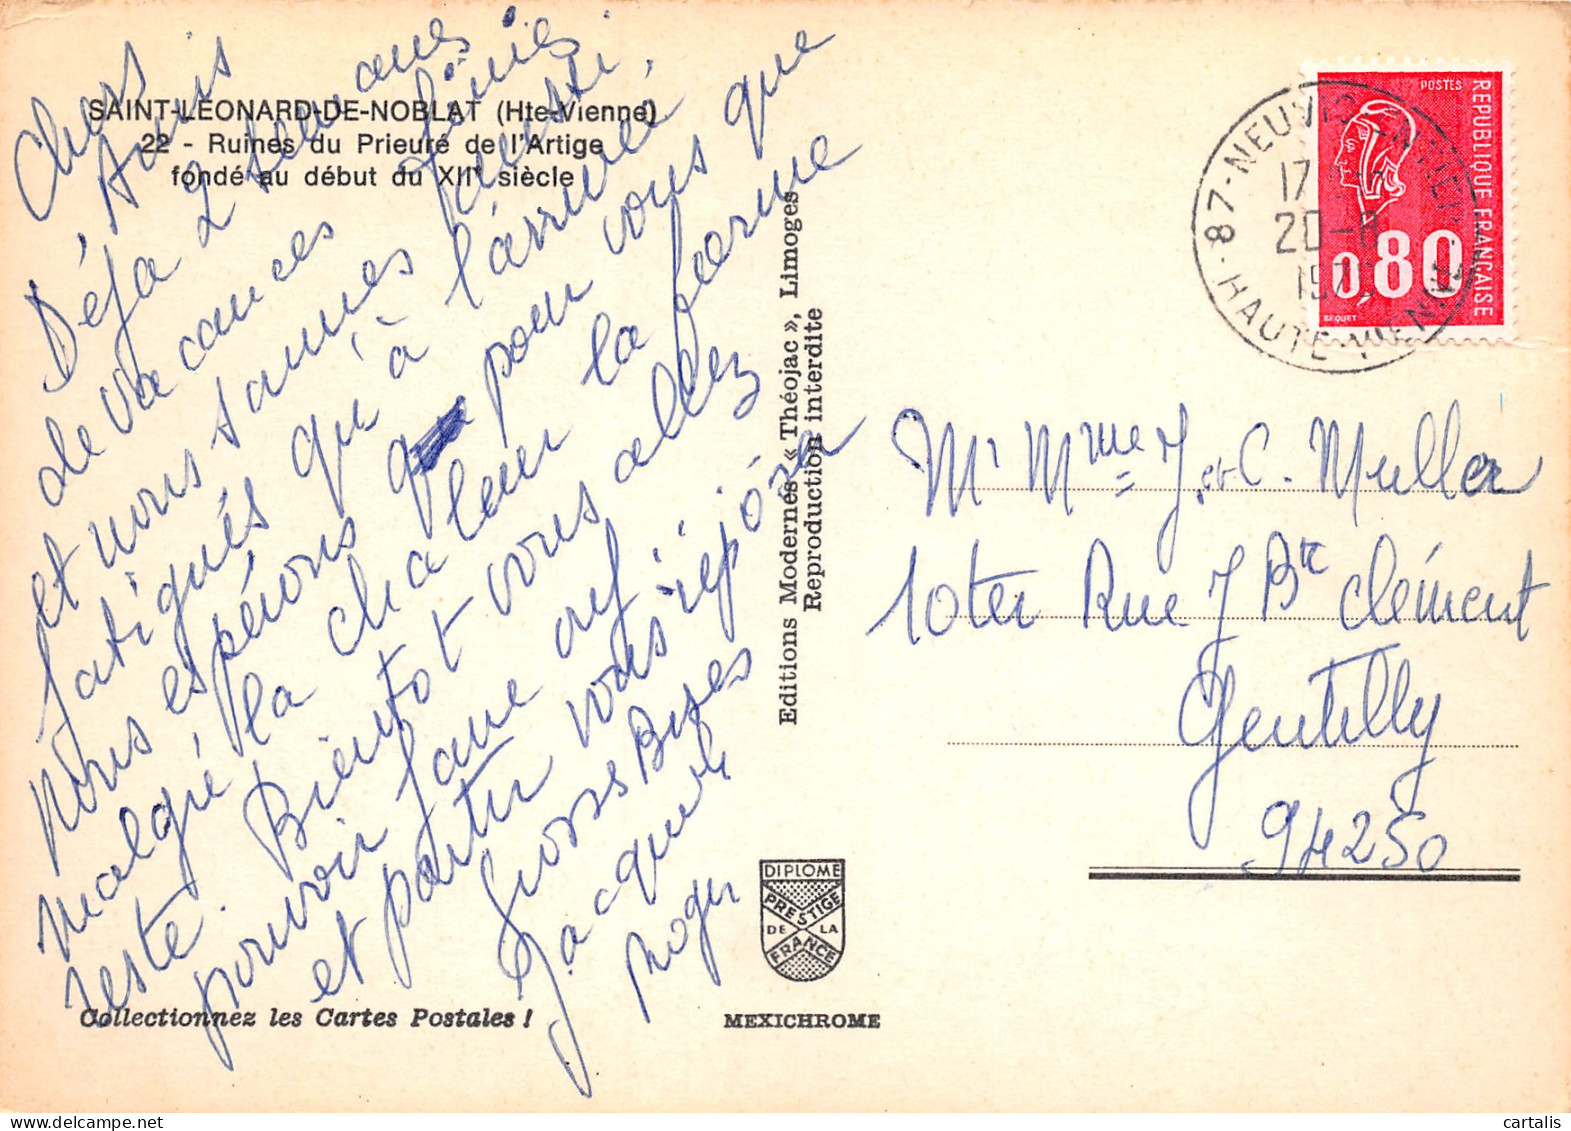 SAINT-LÉONARD-DE-NOBLAT (Hte-Vienne)
22 - Ruines du Prieuré de l'Artige
fondé au début du XIIe siècle
Chers
Amis
Déja 2 semaines
de vacances finies
et nous sommes aussi
fatigués qu'à l'arrivée
nous espérons pour vous que
malgré la chaleur la forme
reste. Bientot vous allez
pouvoir faire ouf
et partir vous
grosses Bises
Jacqueline
Roger
Collectionnez les Cartes Postales !
Editions Modernes « Théojac », Limoges
Reproduction interdite
DIPLOME
PRESTIGE
DE LA
FRANCE
MEXICHROME
POSTES
REPUBLIQUE FRANÇAISE
0,80
BEQUET
87-NEUVIC-ENTIER
17
20-8
HAUTE-VIENNE
Mr Mme J. et C. Muller
10ter Rue J Bte Clément
Gentilly
94250
cartalis
www.delcampe.net